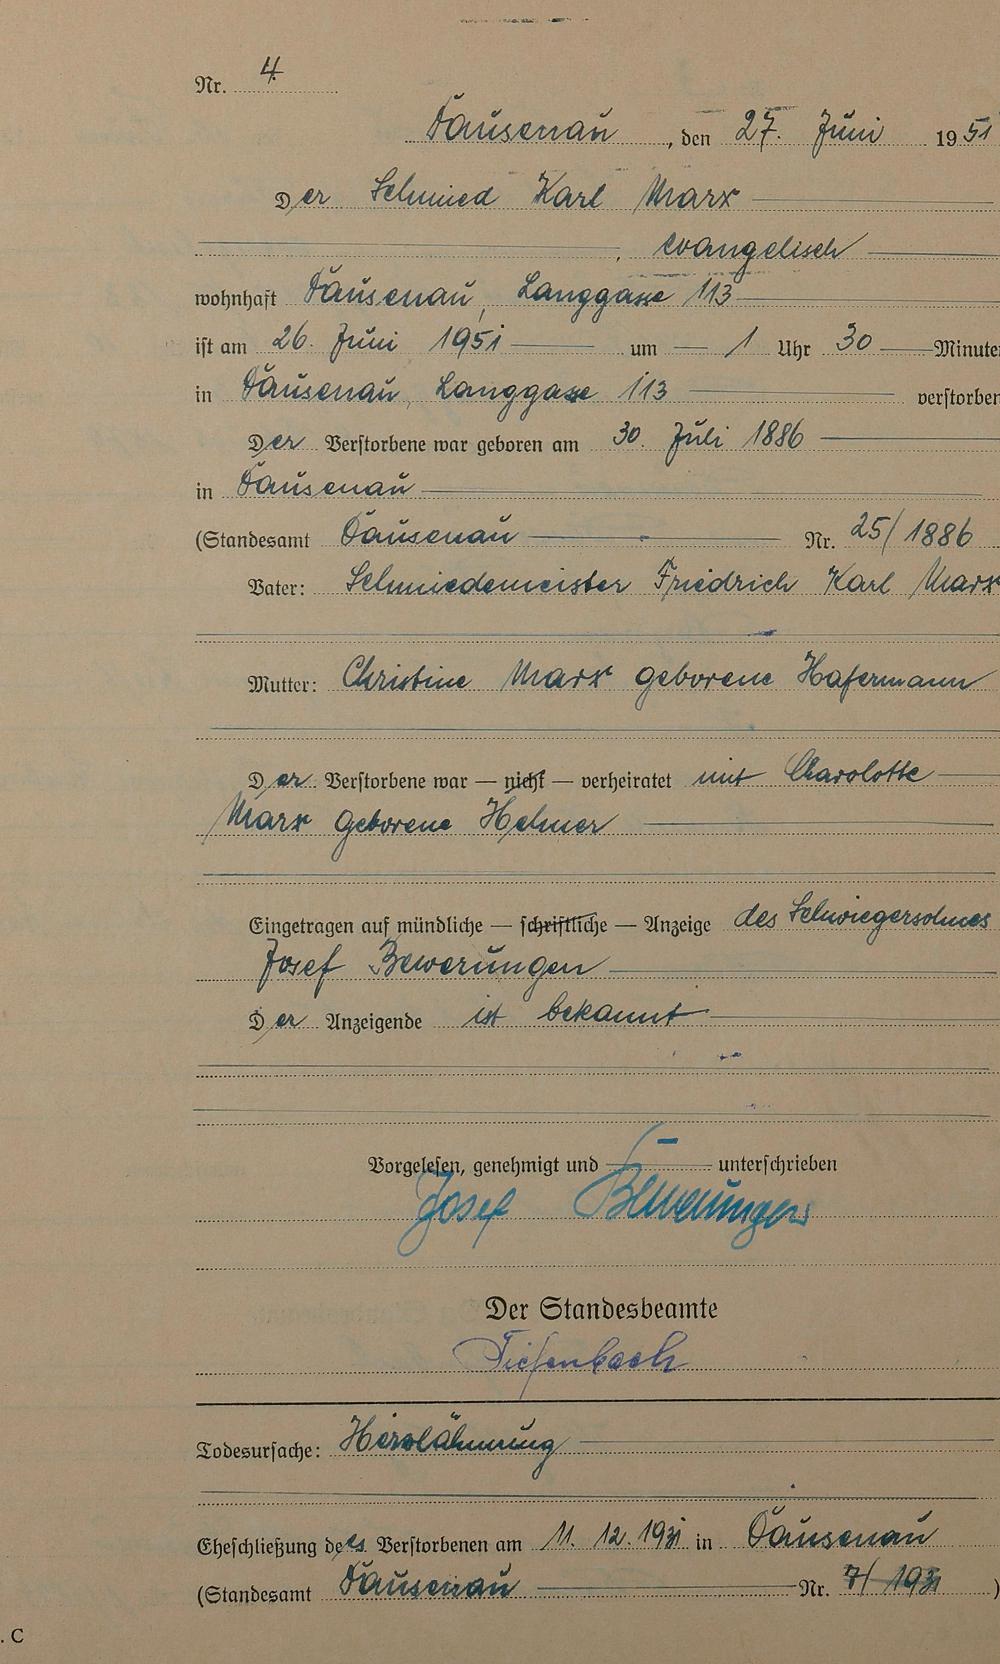 Nr. 4.
Dausenau, den 27. Juni 1951
Der Schmied Karl Marx
, evangelisch
wohnhaft Dausenau, Langgasse 113
ist am 26. Juni 1951 um 1 Uhr 30 Minuten
in Dausenau, Langgasse 113 verstorben
Der Verstorbene war geboren am 30. Juli 1886
in Dausenau
(Standesamt Dausenau Nr. 25/1886
Vater: Schmiedemeister Friedrich Karl Marx
Mutter: Christine Marx geborene Hafermann
Der Verstorbene war — nicht — verheiratet mit Charlotte
Marx geborene Helmer
Eingetragen auf mündliche — schriftliche — Anzeige des Schwiegersohnes
Josef Bewerungen
Der Anzeigende ist bekannt
Vorgelesen, genehmigt und unterschrieben
Josef Bewerungen
Der Standesbeamte
Tiefenbach
Todesursache: Herzlähmung
Eheschließung des Verstorbenen am 11. 12. 1931 in Dausenau
(Standesamt Dausenau Nr. 7/1931)
. C